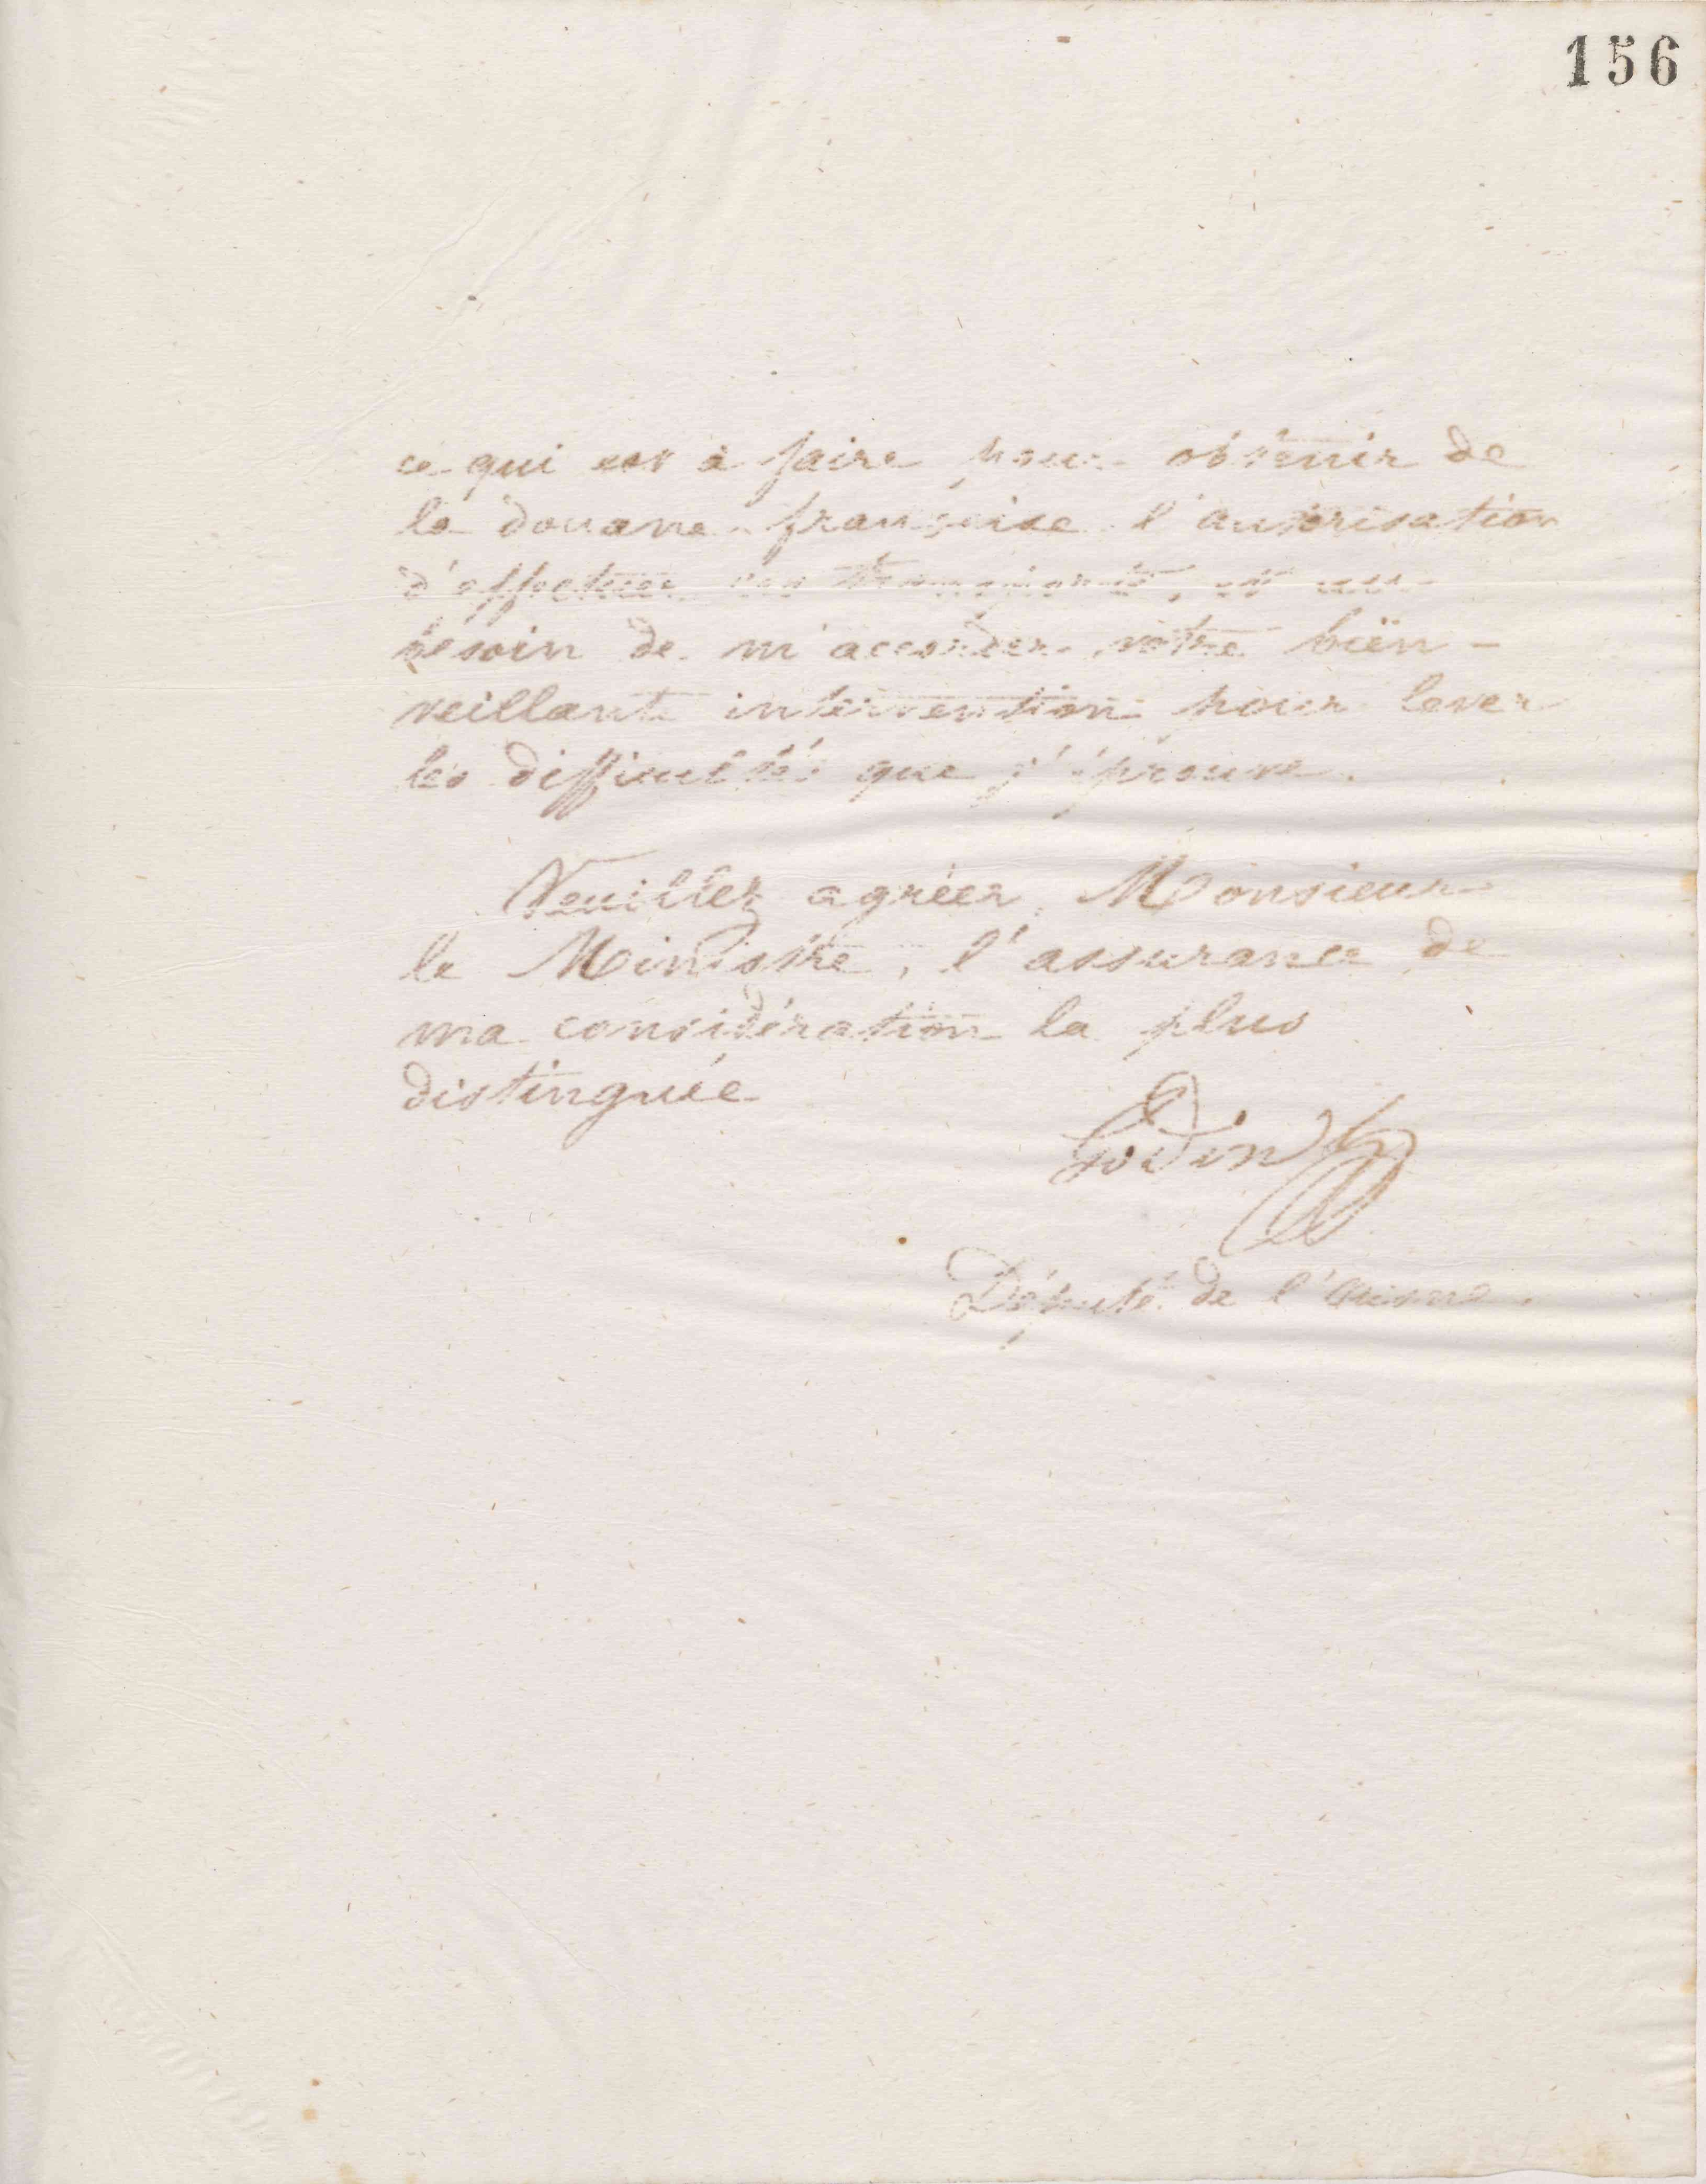 156
ce qui est à faire pour obtenir de
la douane française l'autorisation
d'effectuer ces transports, et au
besoin de m'accorder votre bien-
veillante intervention pour lever
les difficultés que j'éprouve.
Veuillez agréer, Monsieur
le Ministre, l'assurance de
ma considération la plus
distinguée
Godin
Député de l'Aisne.